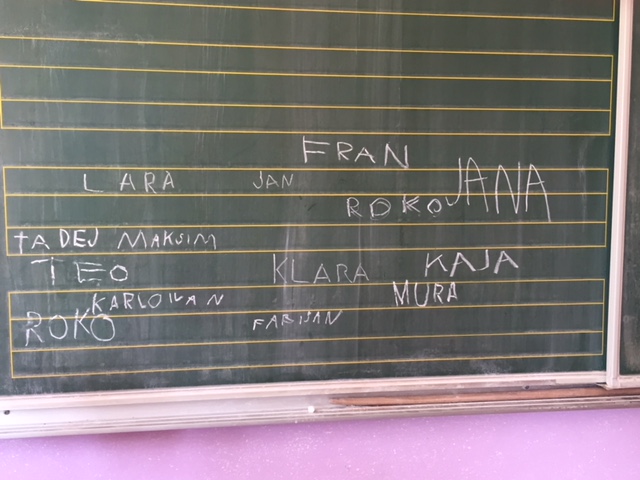 FRAN
LARA JAN JANA
ROKO
TADEJ MAKSIM
TEO KLARA KAJA
KARLO IVAN MURA
ROKO FABIJAN